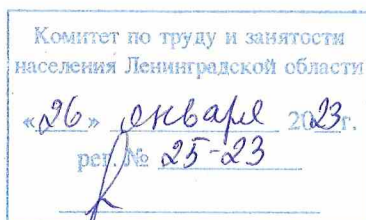 Комитет по труду и занятости
населения Ленинградской области
«26» января 2023г.
рег. № 25-23